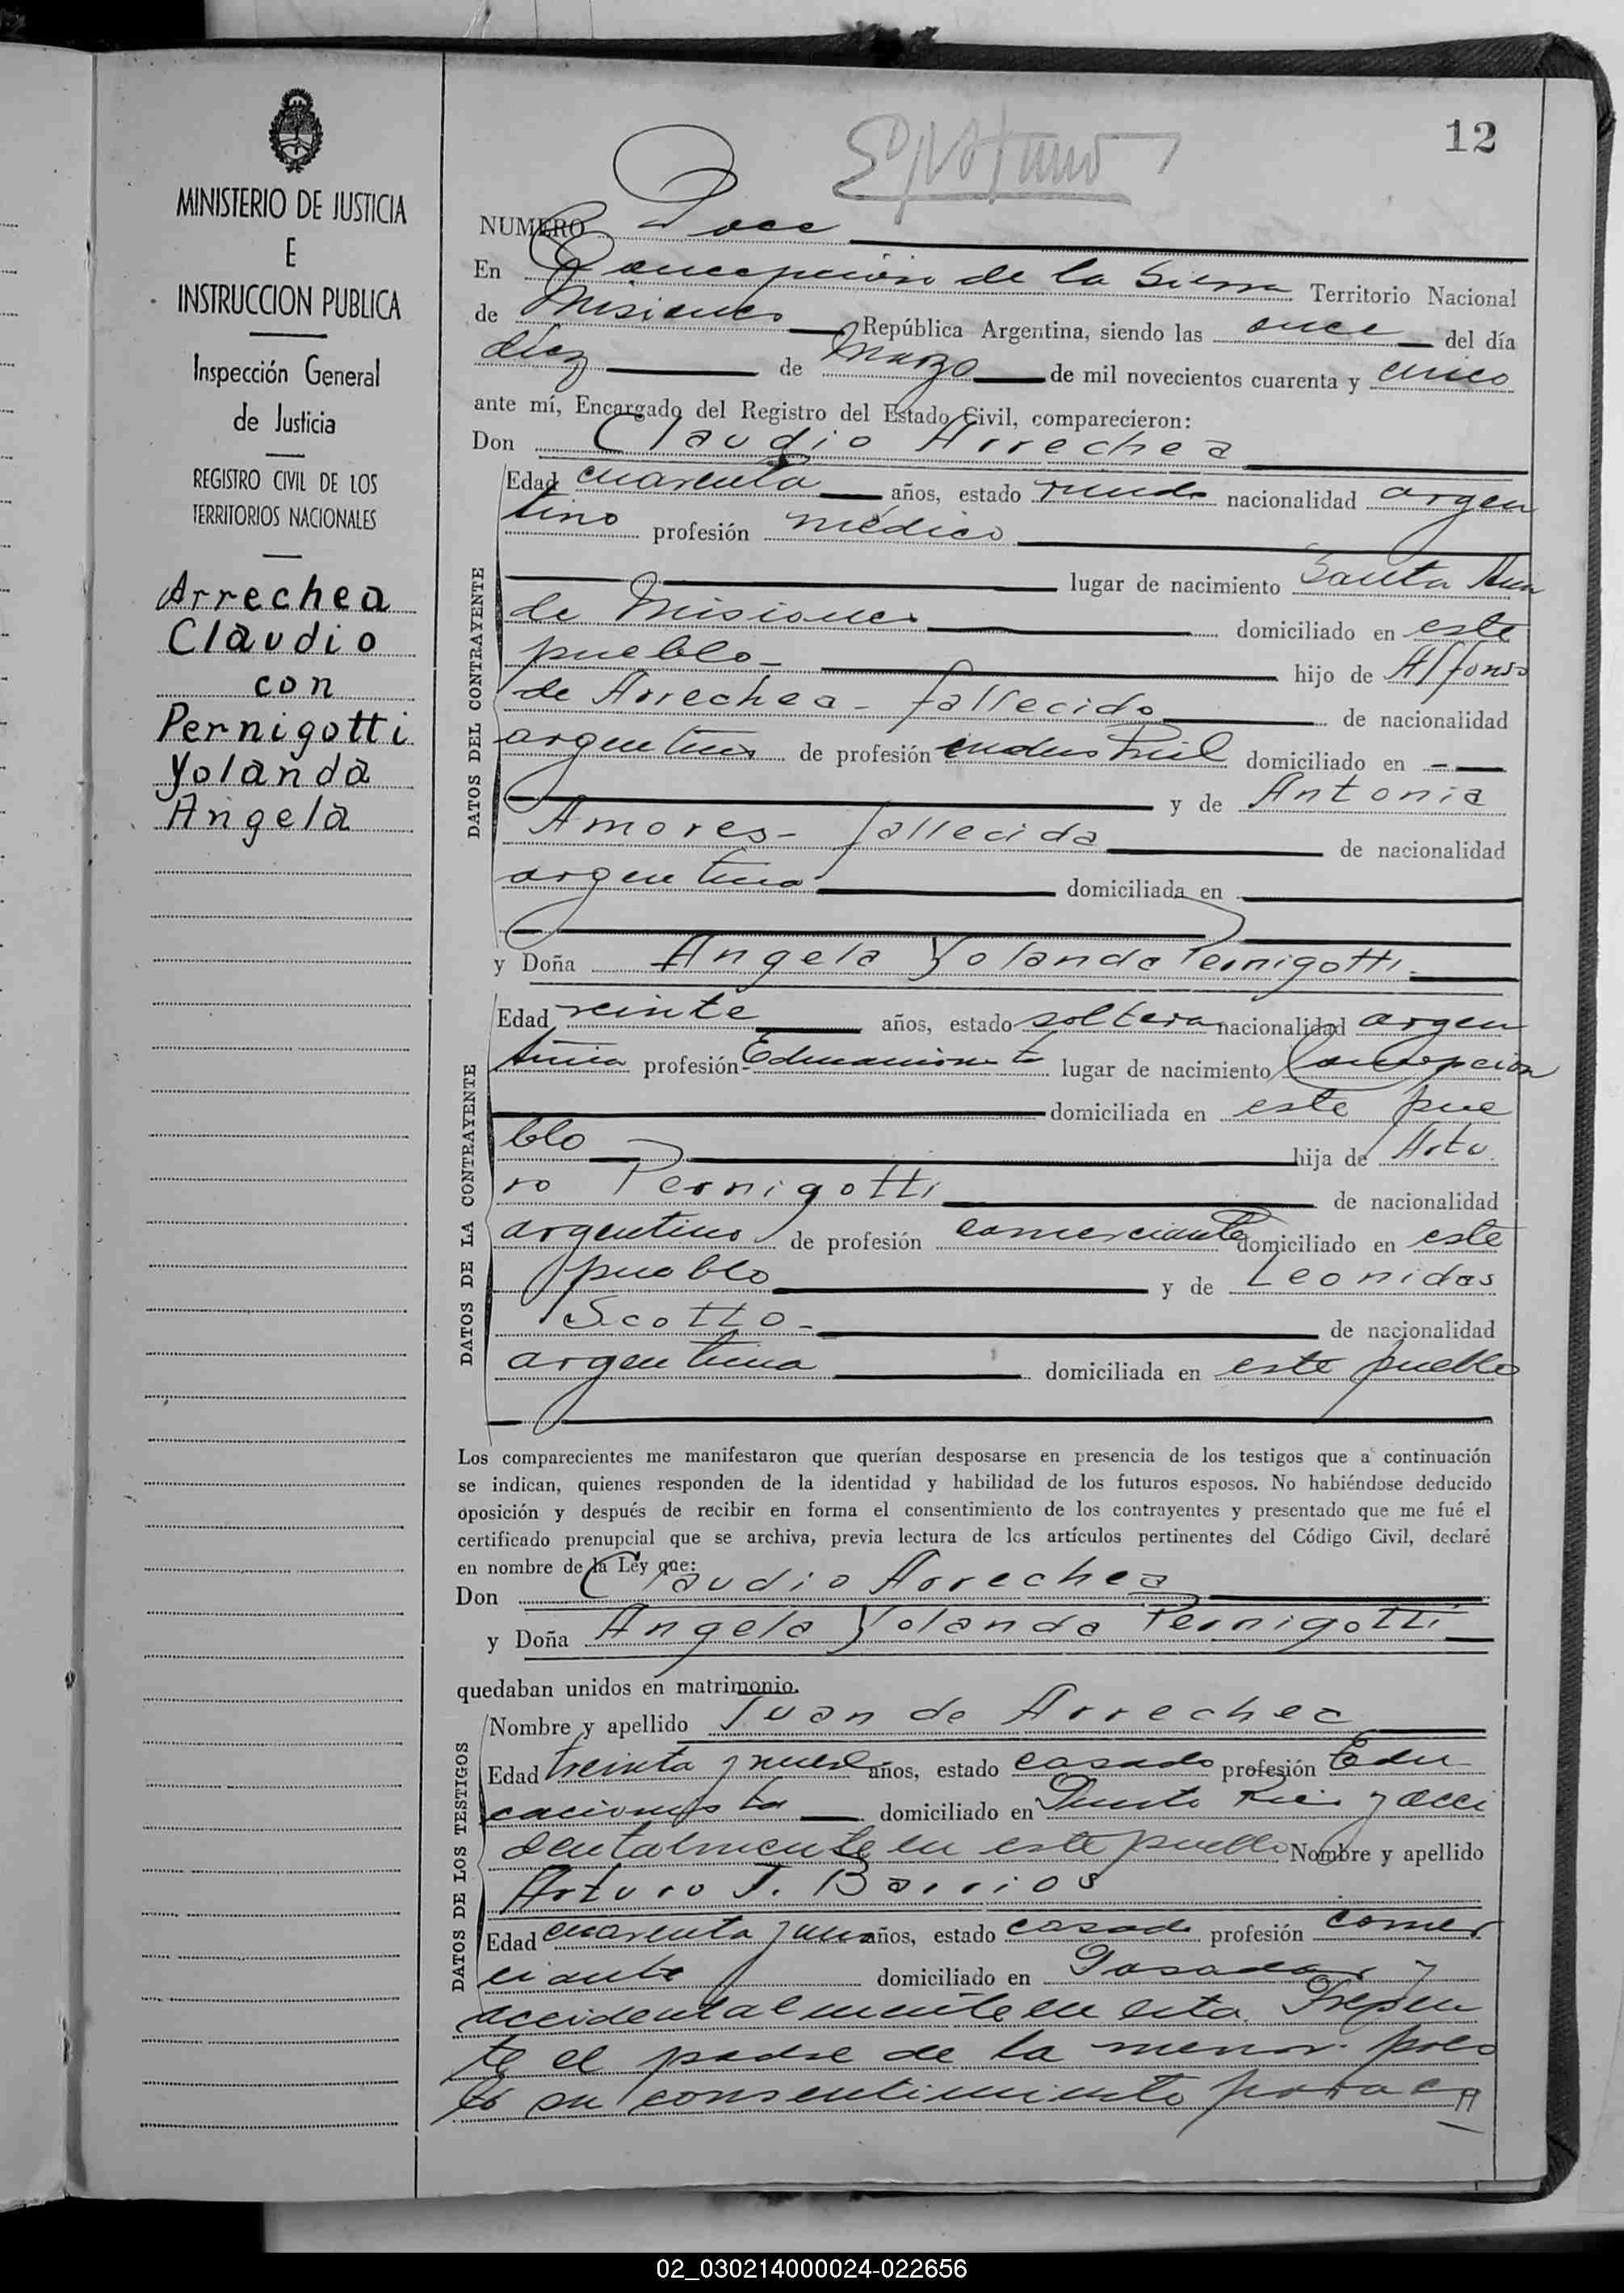 MINISTERIO DE JUSTICIA
E
INSTRUCCION PUBLICA
Inspección General
de Justicia
REGISTRO CIVIL DE LOS
TERRITORIOS NACIONALES
Arrechea
Claudio
con
Pernigotti
Yolanda
Angela
12
NUMERO Doce
En Concepción de la Sierra Territorio Nacional
de Misiones República Argentina, siendo las once del día
diez de Marzo de mil novecientos cuarenta y cinco
ante mí, Encargado del Registro del Estado Civil, comparecieron:
Don Claudio Arrechea
DATOS DEL CONTRAYENTE
Edad cuarenta años, estado viudo nacionalidad argen
tino profesión médico
lugar de nacimiento Santa Ana
de Misiones domiciliado en este
pueblo- hijo de Alfonso
de Arrechea - fallecido de nacionalidad
argentino de profesión industrial domiciliado en -
y de Antonia
Amores - fallecida de nacionalidad
argentina domiciliada en
y Doña Angela Yolanda Pernigotti
DATOS DE LA CONTRAYENTE
Edad veinte años, estado soltera nacionalidad argen
tina profesión Educacionista lugar de nacimiento Concepcion
domiciliada en este pue
blo hija de Artu
ro Pernigotti de nacionalidad
argentino de profesión comerciante domiciliado en este
pueblo y de Leonidas
Scotto- de nacionalidad
argentina domiciliada en este pueblo
Los comparecientes me manifestaron que querían desposarse en presencia de los testigos que a continuación
se indican, quienes responden de la identidad y habilidad de los futuros esposos. No habiéndose deducido
oposición y después de recibir en forma el consentimiento de los contrayentes y presentado que me fué el
certificado prenupcial que se archiva, previa lectura de los artículos pertinentes del Código Civil, declaré
en nombre de la Ley que:
Don Claudio Arrechea
y Doña Angela Yolanda Pernigotti
quedaban unidos en matrimonio.
DATOS DE LOS TESTIGOS
Nombre y apellido Juan de Arrechea
Edad treinta y nueve años, estado casado profesión Edu
cacionista domiciliado en Puerto Rico y acci
dentalmente en este pueblo Nombre y apellido
Arturo J. Barrios
Edad cuarenta y un años, estado casado profesión comer
ciante domiciliado en Posadas y
accidentalmente en esta. Presen
te el padre de la menor. pres
tó su consentimiento para es
02_030214000024-022656